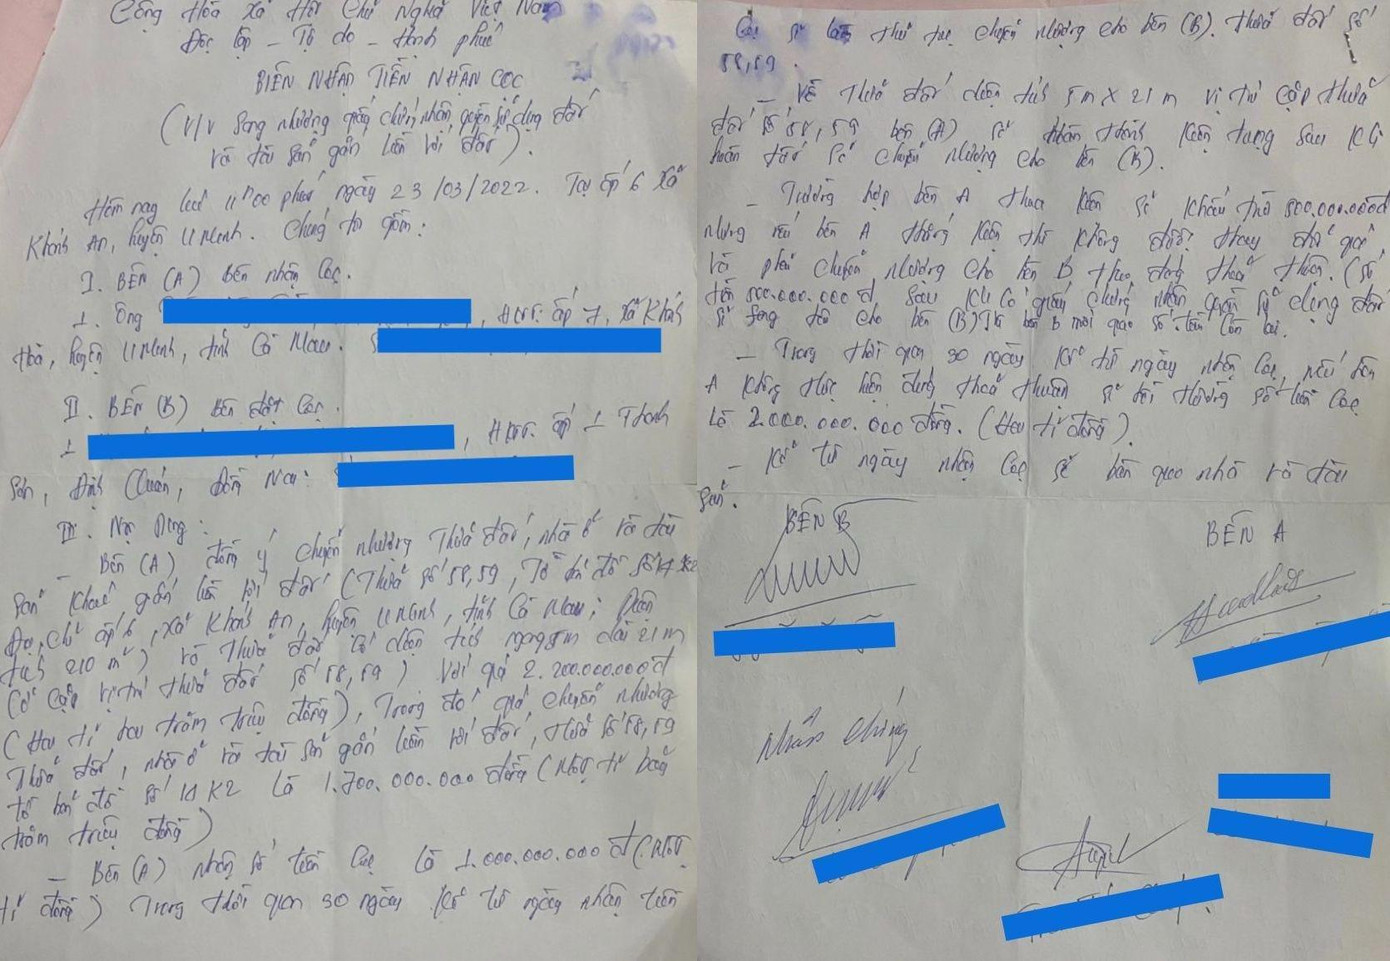 Cộng Hòa Xã Hội Chủ Nghĩa Việt Nam
Độc lập - Tự do - Hạnh phúc
BIÊN NHẬN TIỀN NHẬN CỌC
(V/v Sang nhượng giấy chứng nhận quyền sử dụng đất
và tài sản gắn liền với đất).
Hôm nay lúc 11h00 phút ngày 23/03/2022. Tại ấp 6 xã
Khánh An, huyện U Minh. Chúng tôi gồm:
I. BÊN (A) Bên nhận cọc.
1. Ông , HKTT: ấp 7, xã Khánh
Hòa, huyện U Minh, tỉnh Cà Mau.
II. BÊN (B) Bên đặt cọc.
1 , HKTT: ấp 1 Thanh
Sơn, Định Quán, Đồng Nai:
III. Nội Dung:
- Bên (A) đồng ý chuyển nhượng Thửa đất, nhà ở và tài
sản khác gắn liền với đất (Thửa số 58,59, Tờ bản đồ số 14 K2
Địa chỉ ấp 6, xã Khánh An, huyện U Minh, tỉnh Cà Mau; Diện
tích 210 m²) và Thửa đất có diện tích ngang 5m dài 21m
(Có cặp vị trí thửa đất số 58,59) Với giá 2.200.000.000đ
(Hai tỉ hai trăm triệu đồng), Trong đó giá chuyển nhượng
Thửa đất, nhà ở và tài sản gắn liền với đất, thửa số 58,59
tờ bản đồ số 14 K2 Là 1.700.000.000 đồng (Một tỉ bảy
trăm triệu đồng)
- Bên (A) nhận số tiền cọc là 1.000.000.000 đ (Một
tỉ đồng) Trong thời gian 30 ngày kể từ ngày nhận tiền
Cọc sẽ làm thủ tục chuyển nhượng cho bên (B). Thửa đất số
58,59.
- Về Thửa đất diện tích 5m x 21m vị trí cặp thửa
đất số 58,59 bên (A) sẽ hoàn thành kiện tụng sau khi
hoàn tất sẽ chuyển nhượng cho bên (B).
- Trường hợp bên A thua kiện sẽ khấu trừ 500.000.000đ
nhưng nếu bên A thắng kiện thì không được thay đổi giá
và phải chuyển nhượng cho bên B theo đúng thoả thuận. (Số
tiền 500.000.000đ sau khi có giấy chứng nhận quyền sử dụng đất
sẽ sang tên cho bên (B) Thì bên B mới giao số tiền còn lại.
- Trong thời gian 30 ngày kể từ ngày nhận cọc, nếu bên
A không thực hiện đúng thoả thuận sẽ bồi thường số tiền cọc
là 2.000.000.000 đồng. (Hai tỉ đồng).
- Kể từ ngày nhận cọc sẽ bàn giao nhà và tài
sản.
BÊN B
BÊN A
Nhân chứng